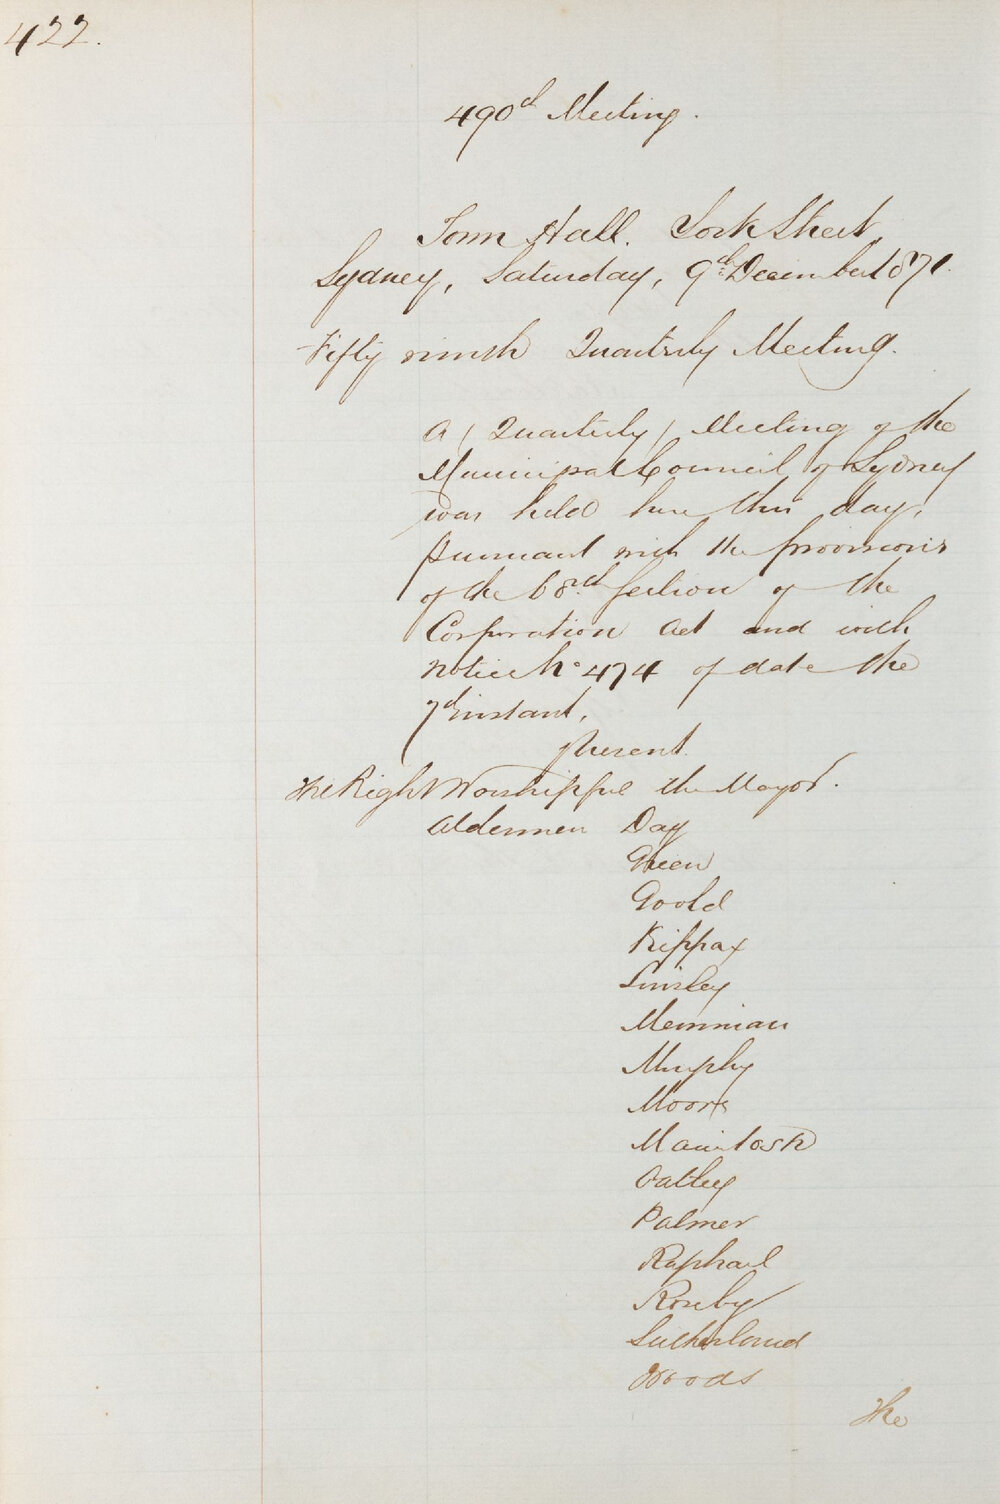 422.
490th Meeting.
Town Hall. York Street
Sydney, Saturday, 9th December 1871.
Fifty ninth Quarterly Meeting.
A (Quarterly) Meeting of the
Municipal Council of Sydney
was held here this day,
pursuant with the provisions
of the 68th Section of the
Corporation Act and with
notice No 474 of date the
7th instant,
Present.
The Right Worshipful the Mayor.
Aldermen Day
Green
Goold
Kippax
Linsley
Merriman
Murphy
Moore
Macintosh
Oatley
Palmer
Raphael
Roseby
Sutherland
Woods
The